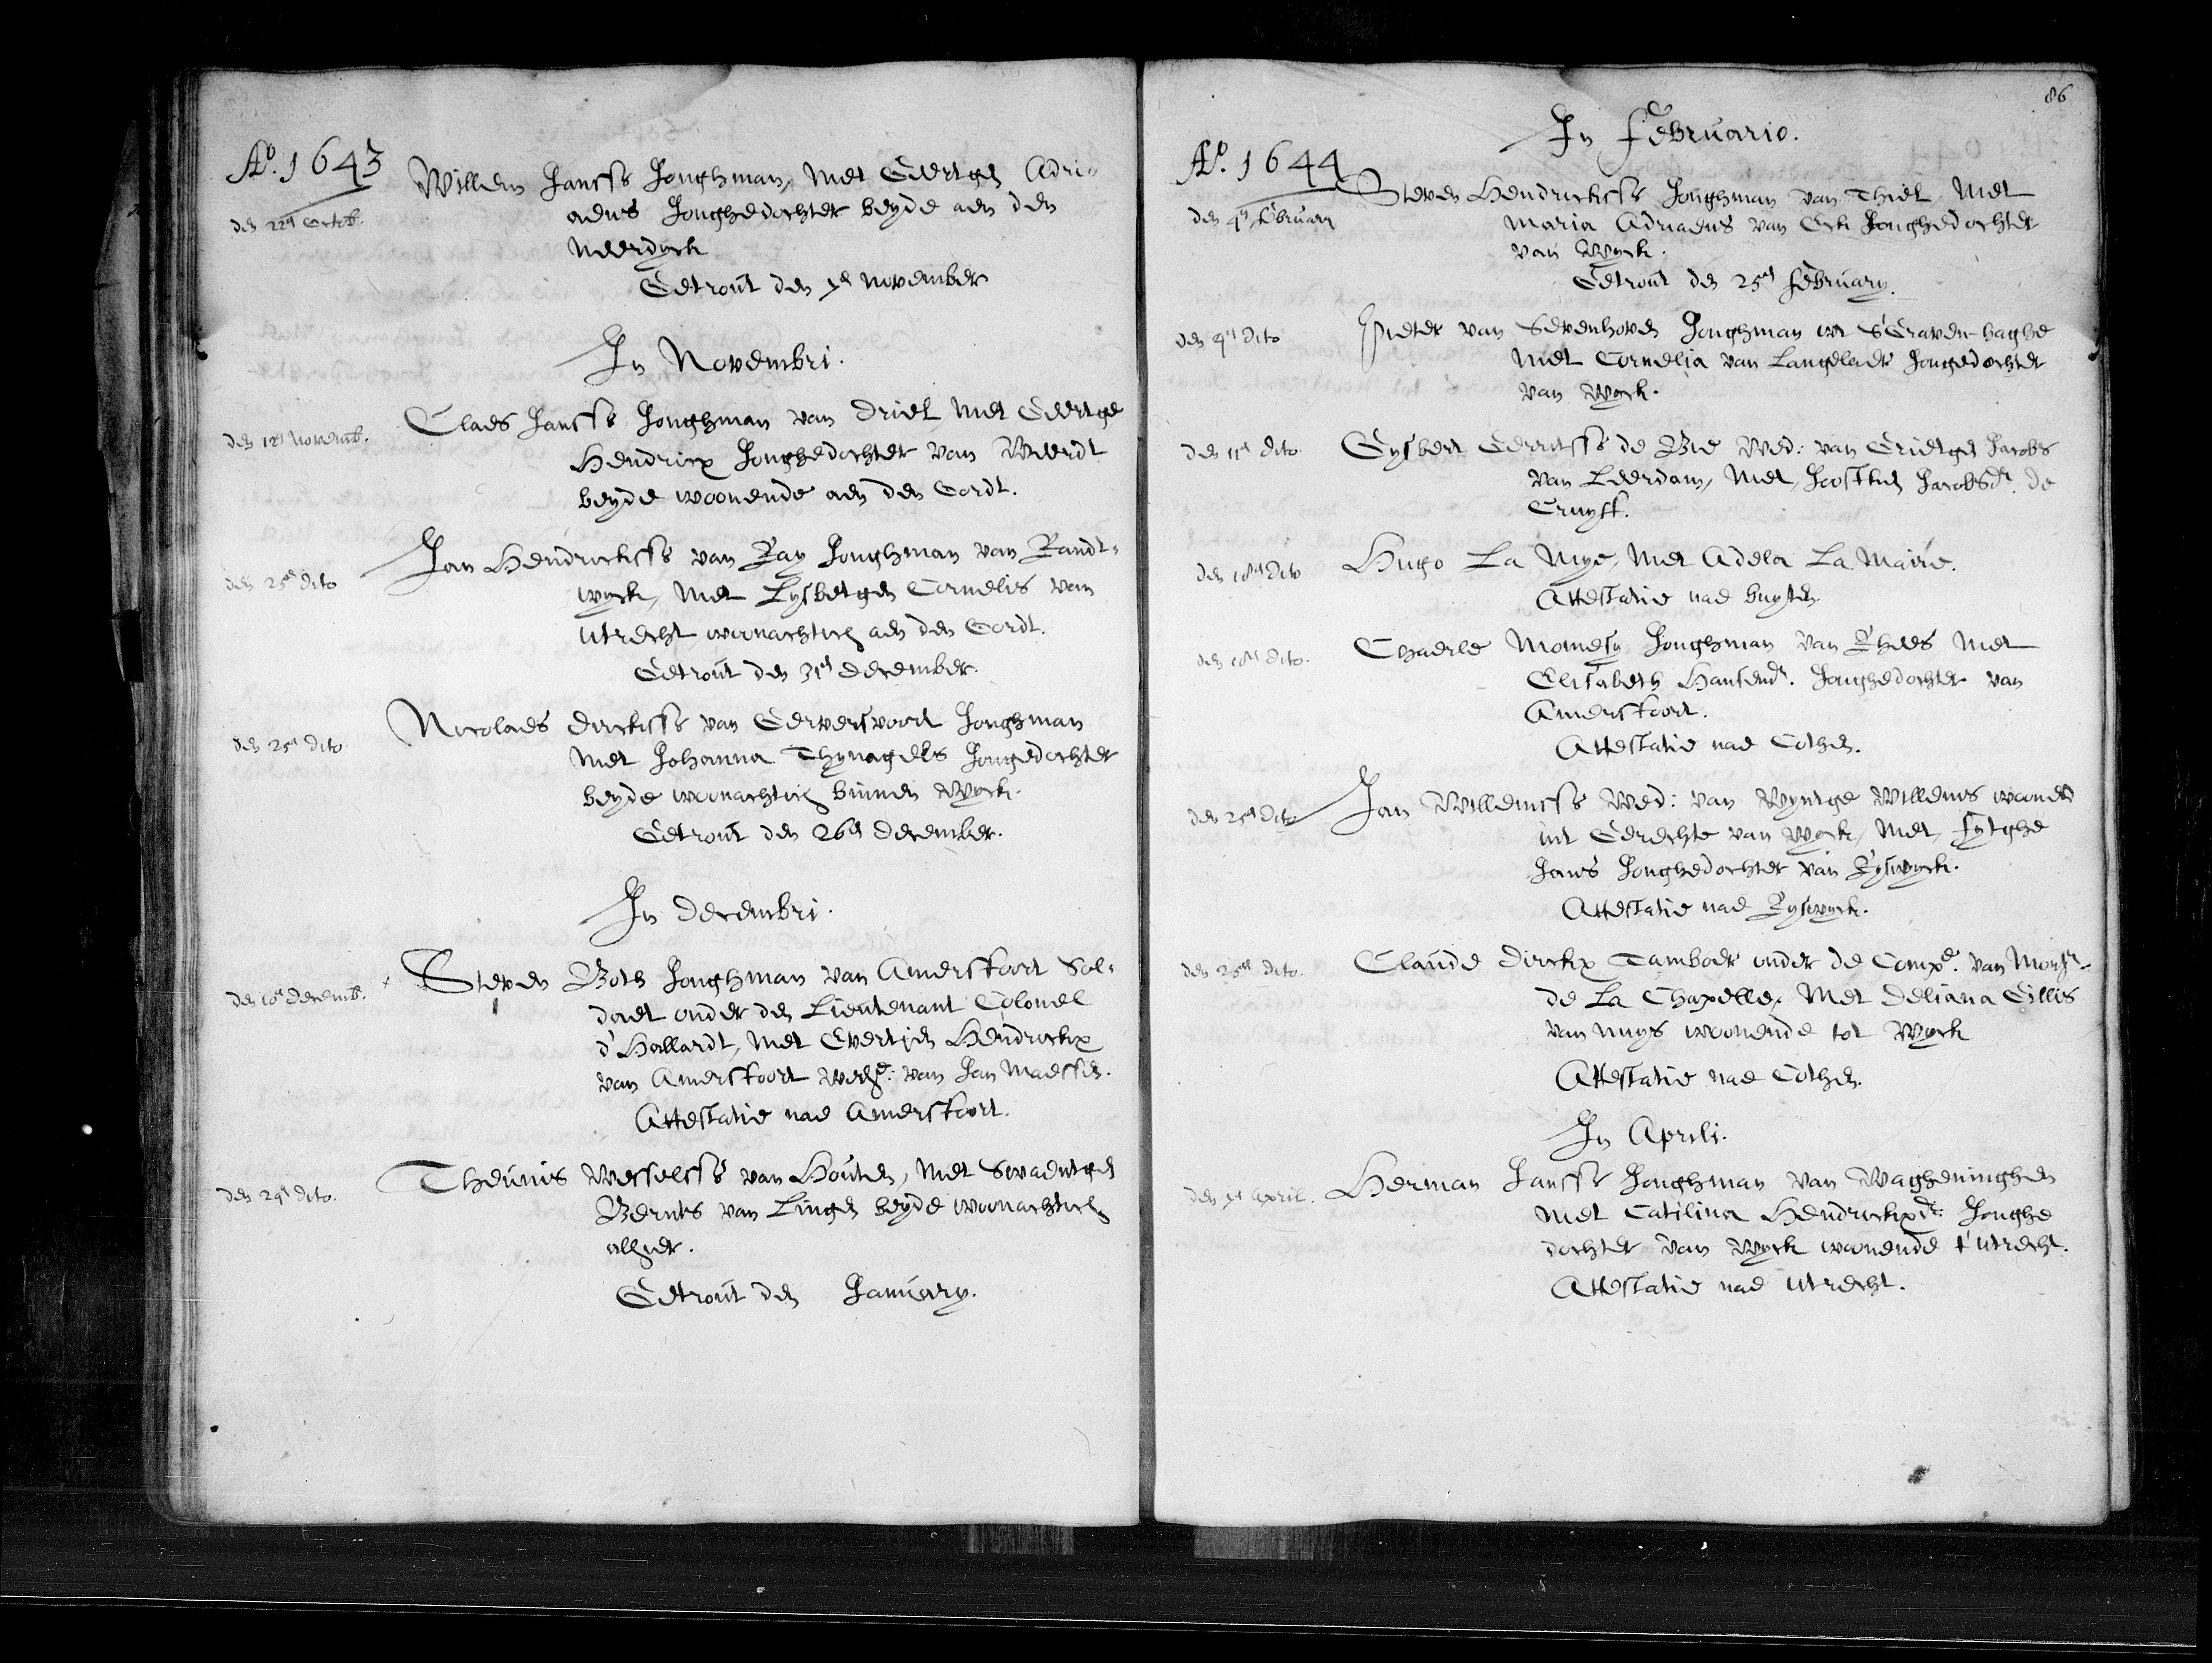 Ao. 1643
den 22en Octob.
Willem Janss Jonghman, met Geertgen Adri-
aens Jonghedochter beyde aen den
Neerdyck
Getrout den 7en November
In Novembri.
den 12en Novemb.
Claes Janss Jonghman van Driel, met Geertge
Hendricx Jonghedochter van Weerdt
beyde woonende aen den Gordt.
den 25en dito
Jan Hendrickss van Ray Jonghman van Randt-
wyck, met Lysbetgen Cornelis van
Utrecht woonachtich aen den Gordt.
Getrout den 31en December.
den 25en dito
Nicolaes Dirckss van Gerversvoort Jonghman
met Johanna Thynagels Jongedochter
beyde woonachtich binnen Wyck.
Getrout den 26en December.
In Decembri.
den 10en Decemb.
Steven Both Jonghman van Amersfoort Sol-
daet onder den Lieutenant Colonel
d'Hallardt, met Evertjen Hendrickx
van Amersfoort Wede: van Jan Maessen.
Attestatie nae Amersfoort.
den 29en dito.
Theunis Wesselss van Houten, met Swaentgen
Bernts van Lingen beyde woonachtich
alhier.
Getrout den January.
86
In Februario.
Ao. 1644
den 4en Februarij
Steven Hendrickss Jonghman van Thiel, met
Maria Adriaens van Eck Jonghedochter
van Wyck.
Getrout den 25en February.
den 4en dito
Pieter van Sevenhoven Jonghman uit S'Graven-haghe
met Cornelia van Langelaer Jongedochter
van Wyck.
den 11en dito.
Gysbert Gerritss de Bie Wed: van Grietgen Jacobs
van Leerdam, met, Joosthen Jacobsdr. de
Cruyff.
den 18en dito
Hugo La Mye, met Adela La Maire.
Attestatie nae buyten.
den 18en dito.
Chaerle Momesy Jonghman van Rhees met
Elisabeth Hansendr. Jonghedochter van
Amersfoort.
Attestatie nae Cothen.
den 25en dito
Jan Willemss Wed: van Wyntge Willems woonend
int Gerechte van Wyck, met, Fytghe
Jans Jonghedochter van Ryswyck.
Attestatie nae Ryswyck.
den 25en dito.
Claude Dirckx Tamboer onder de Compe. van Monsr.
de La Chapelle, met Deliana Gillis
van Nuys woonende tot Wyck
Attestatie nae Cothen.
In Aprili.
den 7en April.
Herman Janss Jonghman van Wagheninghen
met Catilina Hendrickxdr: Jonghe
dochter van Wyck woonende t'Utrecht.
Attestatie nae Utrecht.